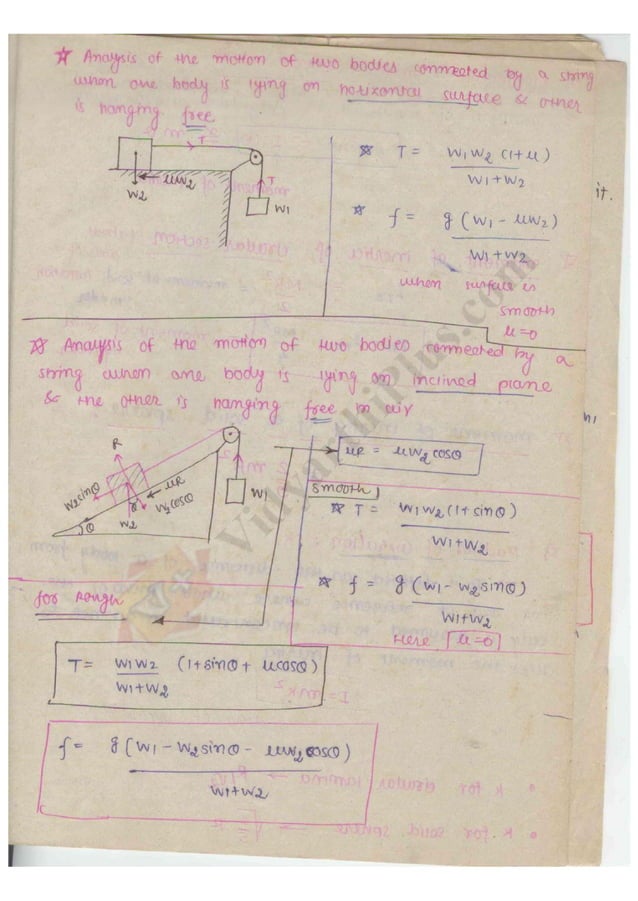 ☆ Analysis of the motion of two bodies connected by a string
when one body is lying on horizontal surface & other
is hanging free
T
T
μW2
W2
W1
☆ T = W1W2 (1+μ)
W1+W2
☆ f = g (W1 - μW2)
W1+W2
when surface is
smooth
μ=0
it.
☆ Analysis of the motion of two bodies connected by a
string when one body is lying on inclined plane
& the other is hanging free in air
R
W2sinθ
μR
W2cosθ
W2
θ
W1
μR = μW2cosθ
Smooth,
☆ T = W1W2(1+sinθ)
W1+W2
☆ f = g(W1 - W2sinθ)
W1+W2
Here μ=0
for rough
T = W1W2 (1+sinθ + μcosθ)
W1+W2
f = g(W1 - W2sinθ - μW2cosθ)
W1+W2
VidyarthiPlus.com
V+
I=mk²
• k for circular lamina →
• k for solid sphere →